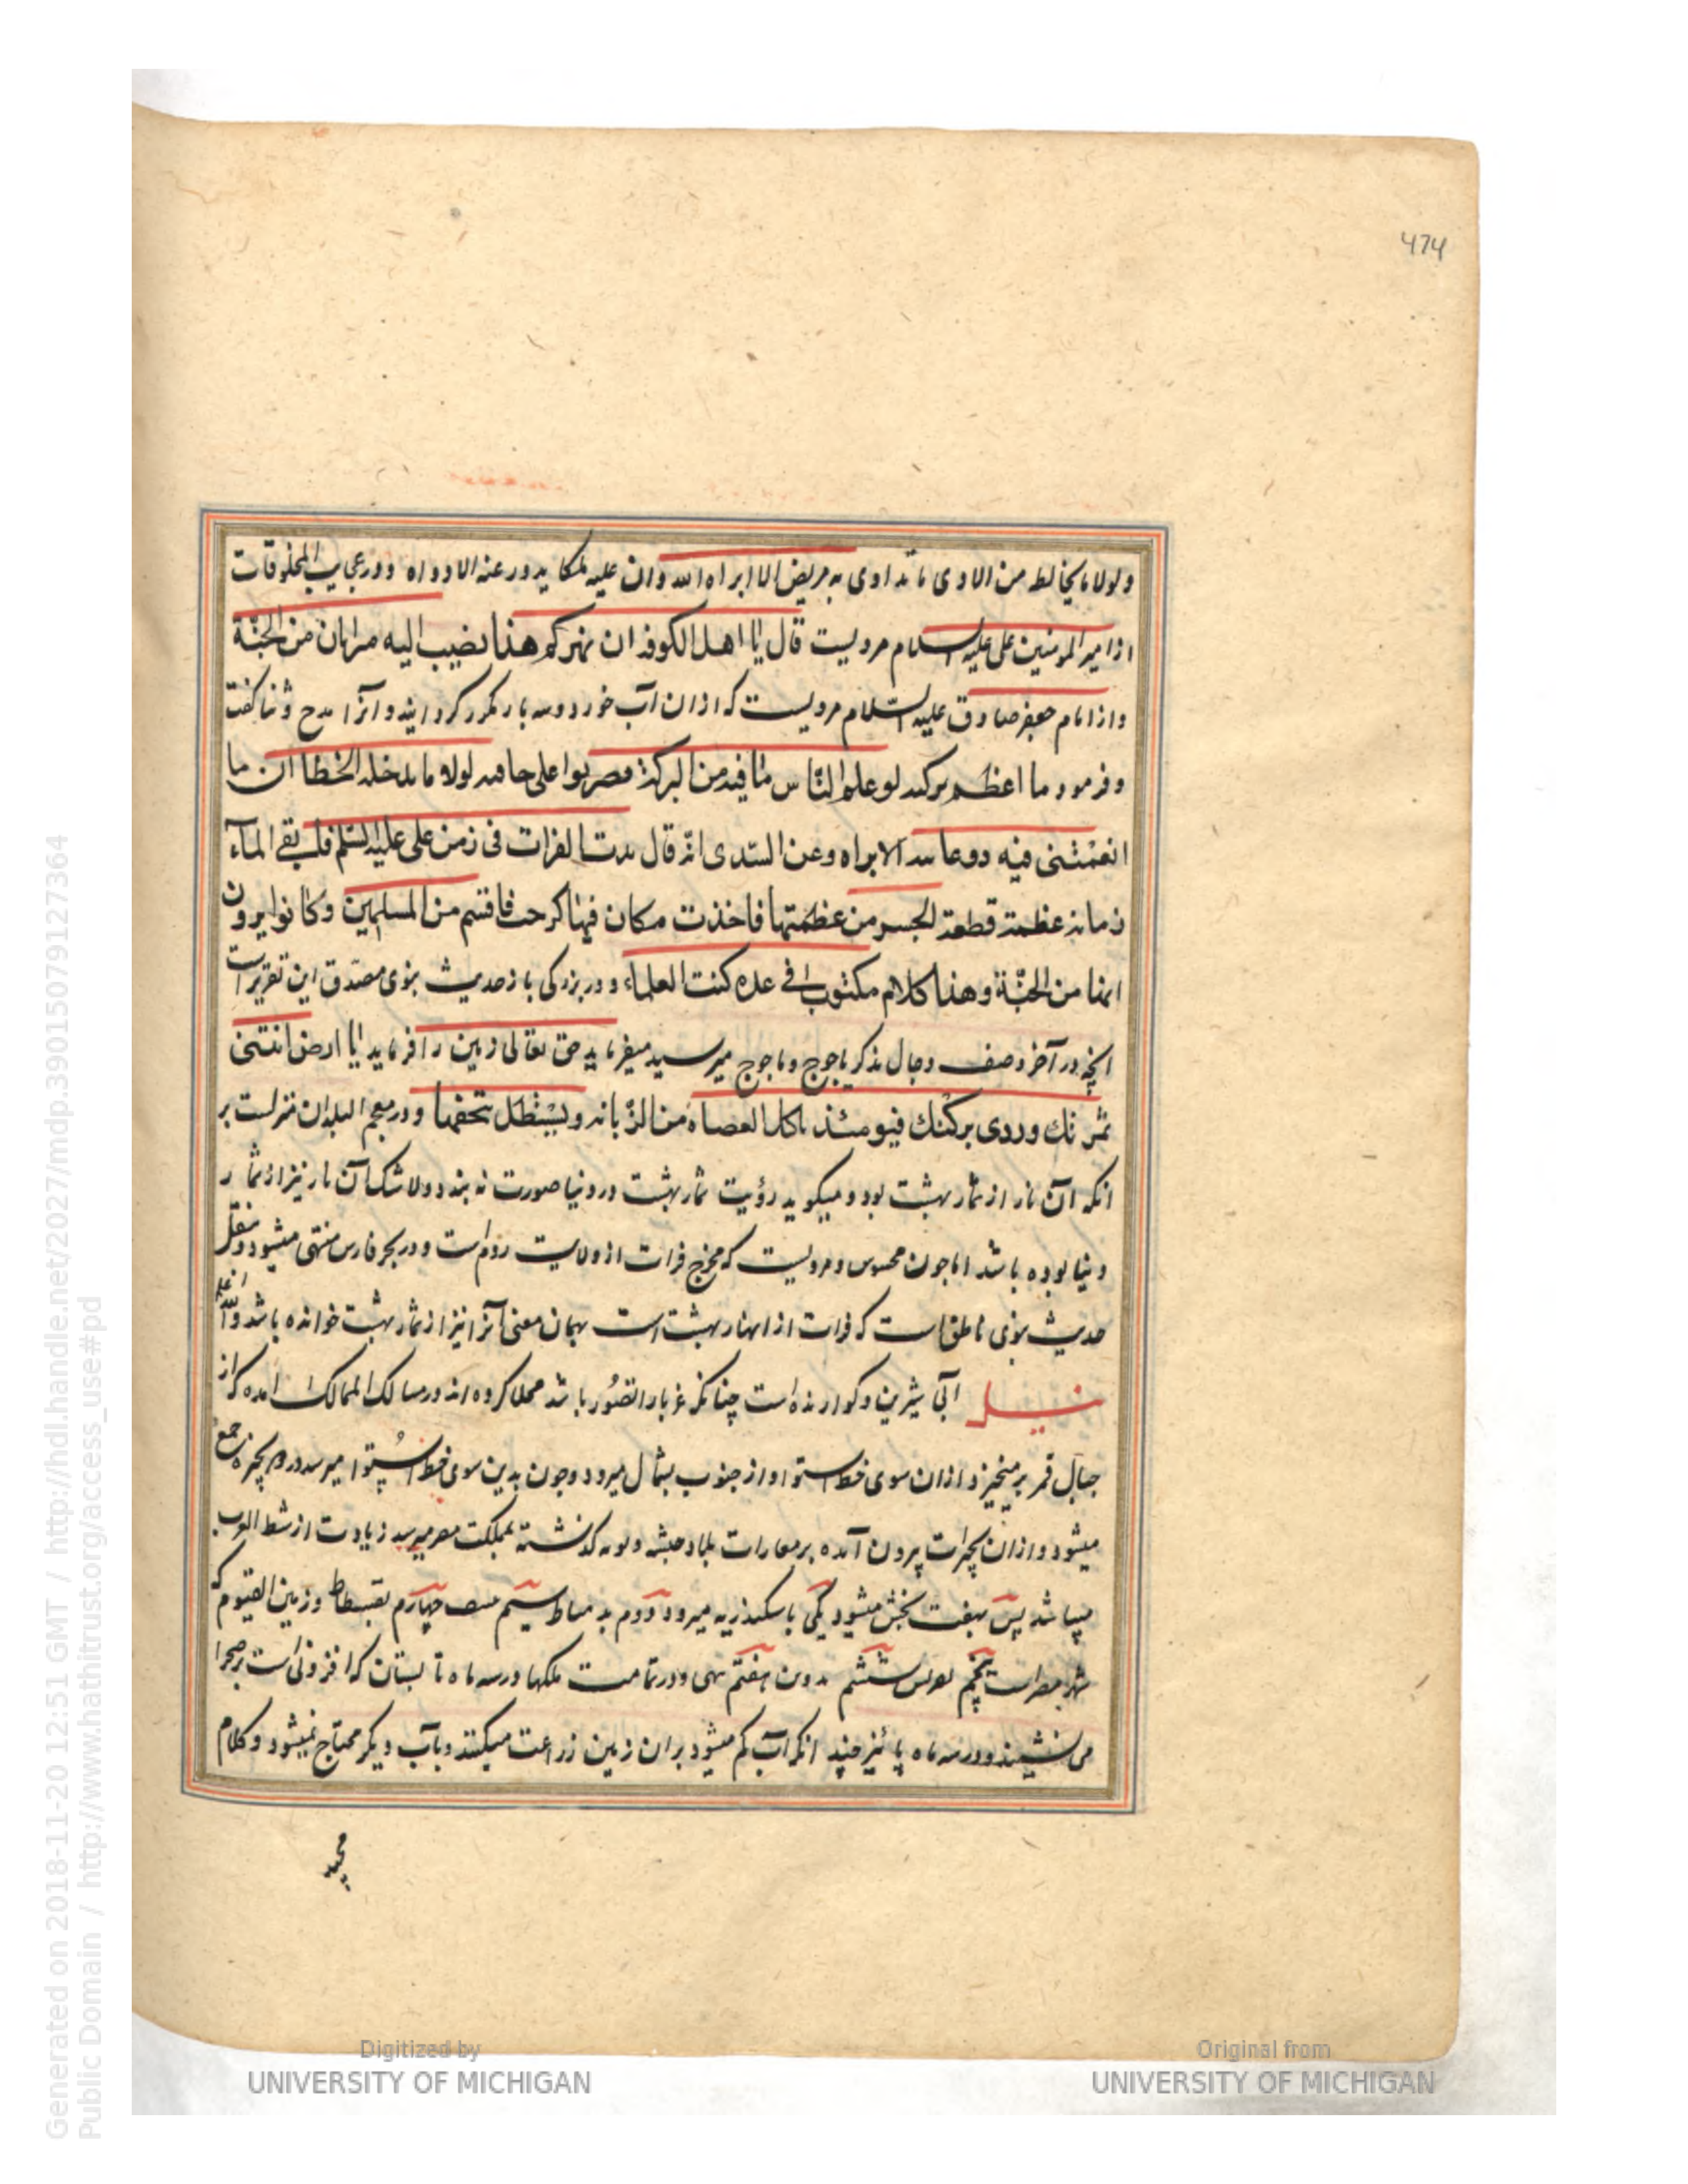 474
ولولا ما یخالط من الاوی ما تداوی به مریض الا ابراه الله وان علیه ملکا یدور عنه الادواه ودر عجایب المخلوقات
از امیر المومنین علی علیه السلام مرویست قال یا اهل الکوفه ان نهرکم هذا یصب الیه میزابان من الجنة
واز امام جعفر صادق علیه السلام مرویست که از ان آب خورد و سه بار مکرر کردانید و آنرا مدح و ثنا کفت
وفرمود ما اعظم برکته لو علم الناس ما فیه من البرکة لضربوا علی حافتیه لولا ما یدخله الخطا ان ما
انغمس فیه ذو عاهة الا براه وعن السدی انه قال مدت الفرات فی زمن علی علیه السلم فلم یبقی المآء
رمانه عظمة قطعة الجسر من عظمتها فاخذت مکان فیها کر حب فاقسم من المسلمین وکانوا یرون
انها من الجنّة وهذا کلام مکتوب فی عده کتب العلماء ودر بزرکی باز حدیث نبوی مصدق این تقریر است
انچه در آخر وصف دجال بذکر یاجوج وماجوج میرسید میفرماید حق تعالی زمین را فرماید یا ارض انبتی
ثمرتک وردی برکتک فیومئذ یاکل العصابه من الرمانه ویستظل بقحفها ودر معجم البلدان منزلست بر
انکه آن نار از ثمار بهشت بود ومیکوید رؤیت ثمار بهشت در دنیا صورت نه بندد ولاشک آن نار نیز از ثمار
دنیا بوده باشد اما جون محسوس ومرویست که مخرج فرات از ولایت روم است ودر بحر فارس منتهی میشود ونقل
حدیث نبوی ناطق است که فرات از انهار بهشت است بهمان معنی آنرا نیز از ثمار بهشت خوانده باشد والله اعلم
نیل آبی شیرین وکوارنده است چنانکه غربا را تصور باشد محلا کرده اند در مسالک الممالک امده که از
جبال قمر برمیخیزد از ان سوی خط استوا واز جنوب بشمال میرود وجون بدین سوی خط استوا میرسد در دو بحیره جمع
میشود واز ان بحیرات بیرون آمده بر عمارات بلاد حبشه ونوبه کذشته بمملکت مصر میرسد زیادت از شط العرب
میباشد پس بهفت بخش میشود یکی باسکندریه میرود دوم به دمیاط سیم منف چهارم بفسطاط وزمین الفیوم که
شهر مصر است پنجم ششم هفتم ودر تمامت ملکها در سه ماه تابستان که افزونی است بر صحرا
می نشیند ودر سه ماه پائیز چند انکه آب کم میشود بران زمین زراعت میکنند وبآب دیکر محتاج نمیشود وکلام
مجید
Generated on 2018-11-20 12:51 GMT / http://hdl.handle.net/2027/mdp.39015079127364
Public Domain / http://www.hathitrust.org/access_use#pd
Digitized by
UNIVERSITY OF MICHIGAN
Original from
UNIVERSITY OF MICHIGAN